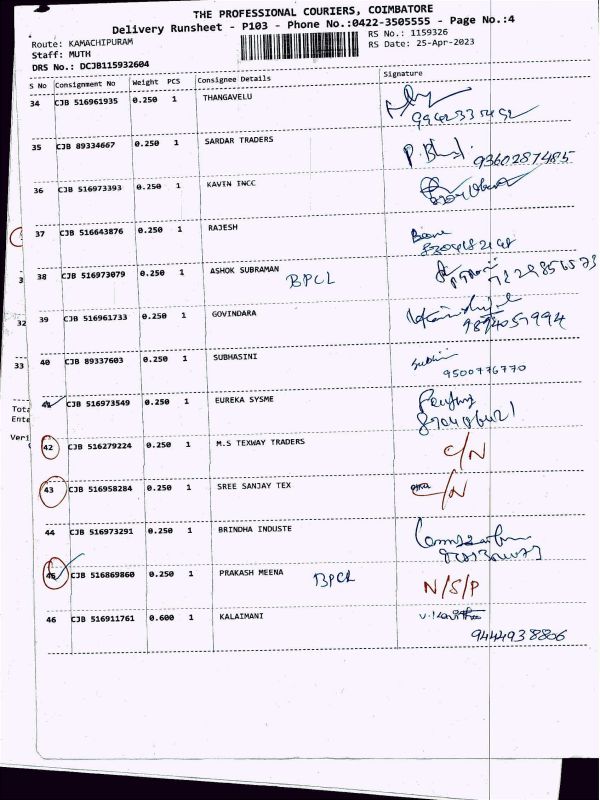 THE PROFESSIONAL COURIERS, COIMBATORE
Delivery Runsheet - P103 - Phone No.:0422-3505555 - Page No.:4
Route: KAMACHIPURAM
RS No.: 1159326
Staff: MUTH
RS Date: 25-Apr-2023
DRS No.: DCJB115932604
S No Consignment No Weight PCS Consignee Details Signature
34 CJB 516961935 0.250 1 THANGAVELU
35 CJB 89334667 0.250 1 SARDAR TRADERS 9360287485
36 CJB 516973393 0.250 1 KAVIN INCC
37 CJB 516643876 0.250 1 RAJESH
3 38 CJB 516973079 0.250 1 ASHOK SUBRAMAN BPCL
32 39 CJB 516961733 0.250 1 GOVINDARA 9894051994
33 40 CJB 89337603 0.250 1 SUBHASINI 9500776770
41 CJB 516973549 0.250 1 EUREKA SYSME
Tota
Ente
Veri
42 CJB 516279224 0.250 1 M.S TEXWAY TRADERS C/N
43 CJB 516958284 0.250 1 SREE SANJAY TEX C/N
44 CJB 516973291 0.250 1 BRINDHA INDUSTE
45 CJB 516869860 0.250 1 PRAKASH MEENA BPCL N/S/P
46 CJB 516911761 0.600 1 KALAIMANI
9444938806